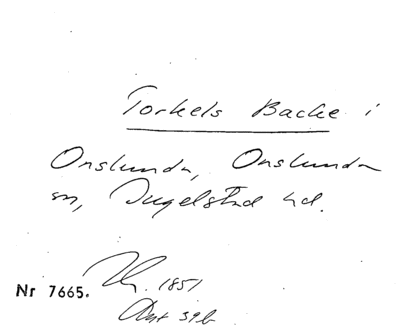 Torkels Backe i
Onslunda, Onslunda
sn, Ingelstad hd.
1851
Nr 7665.
39b